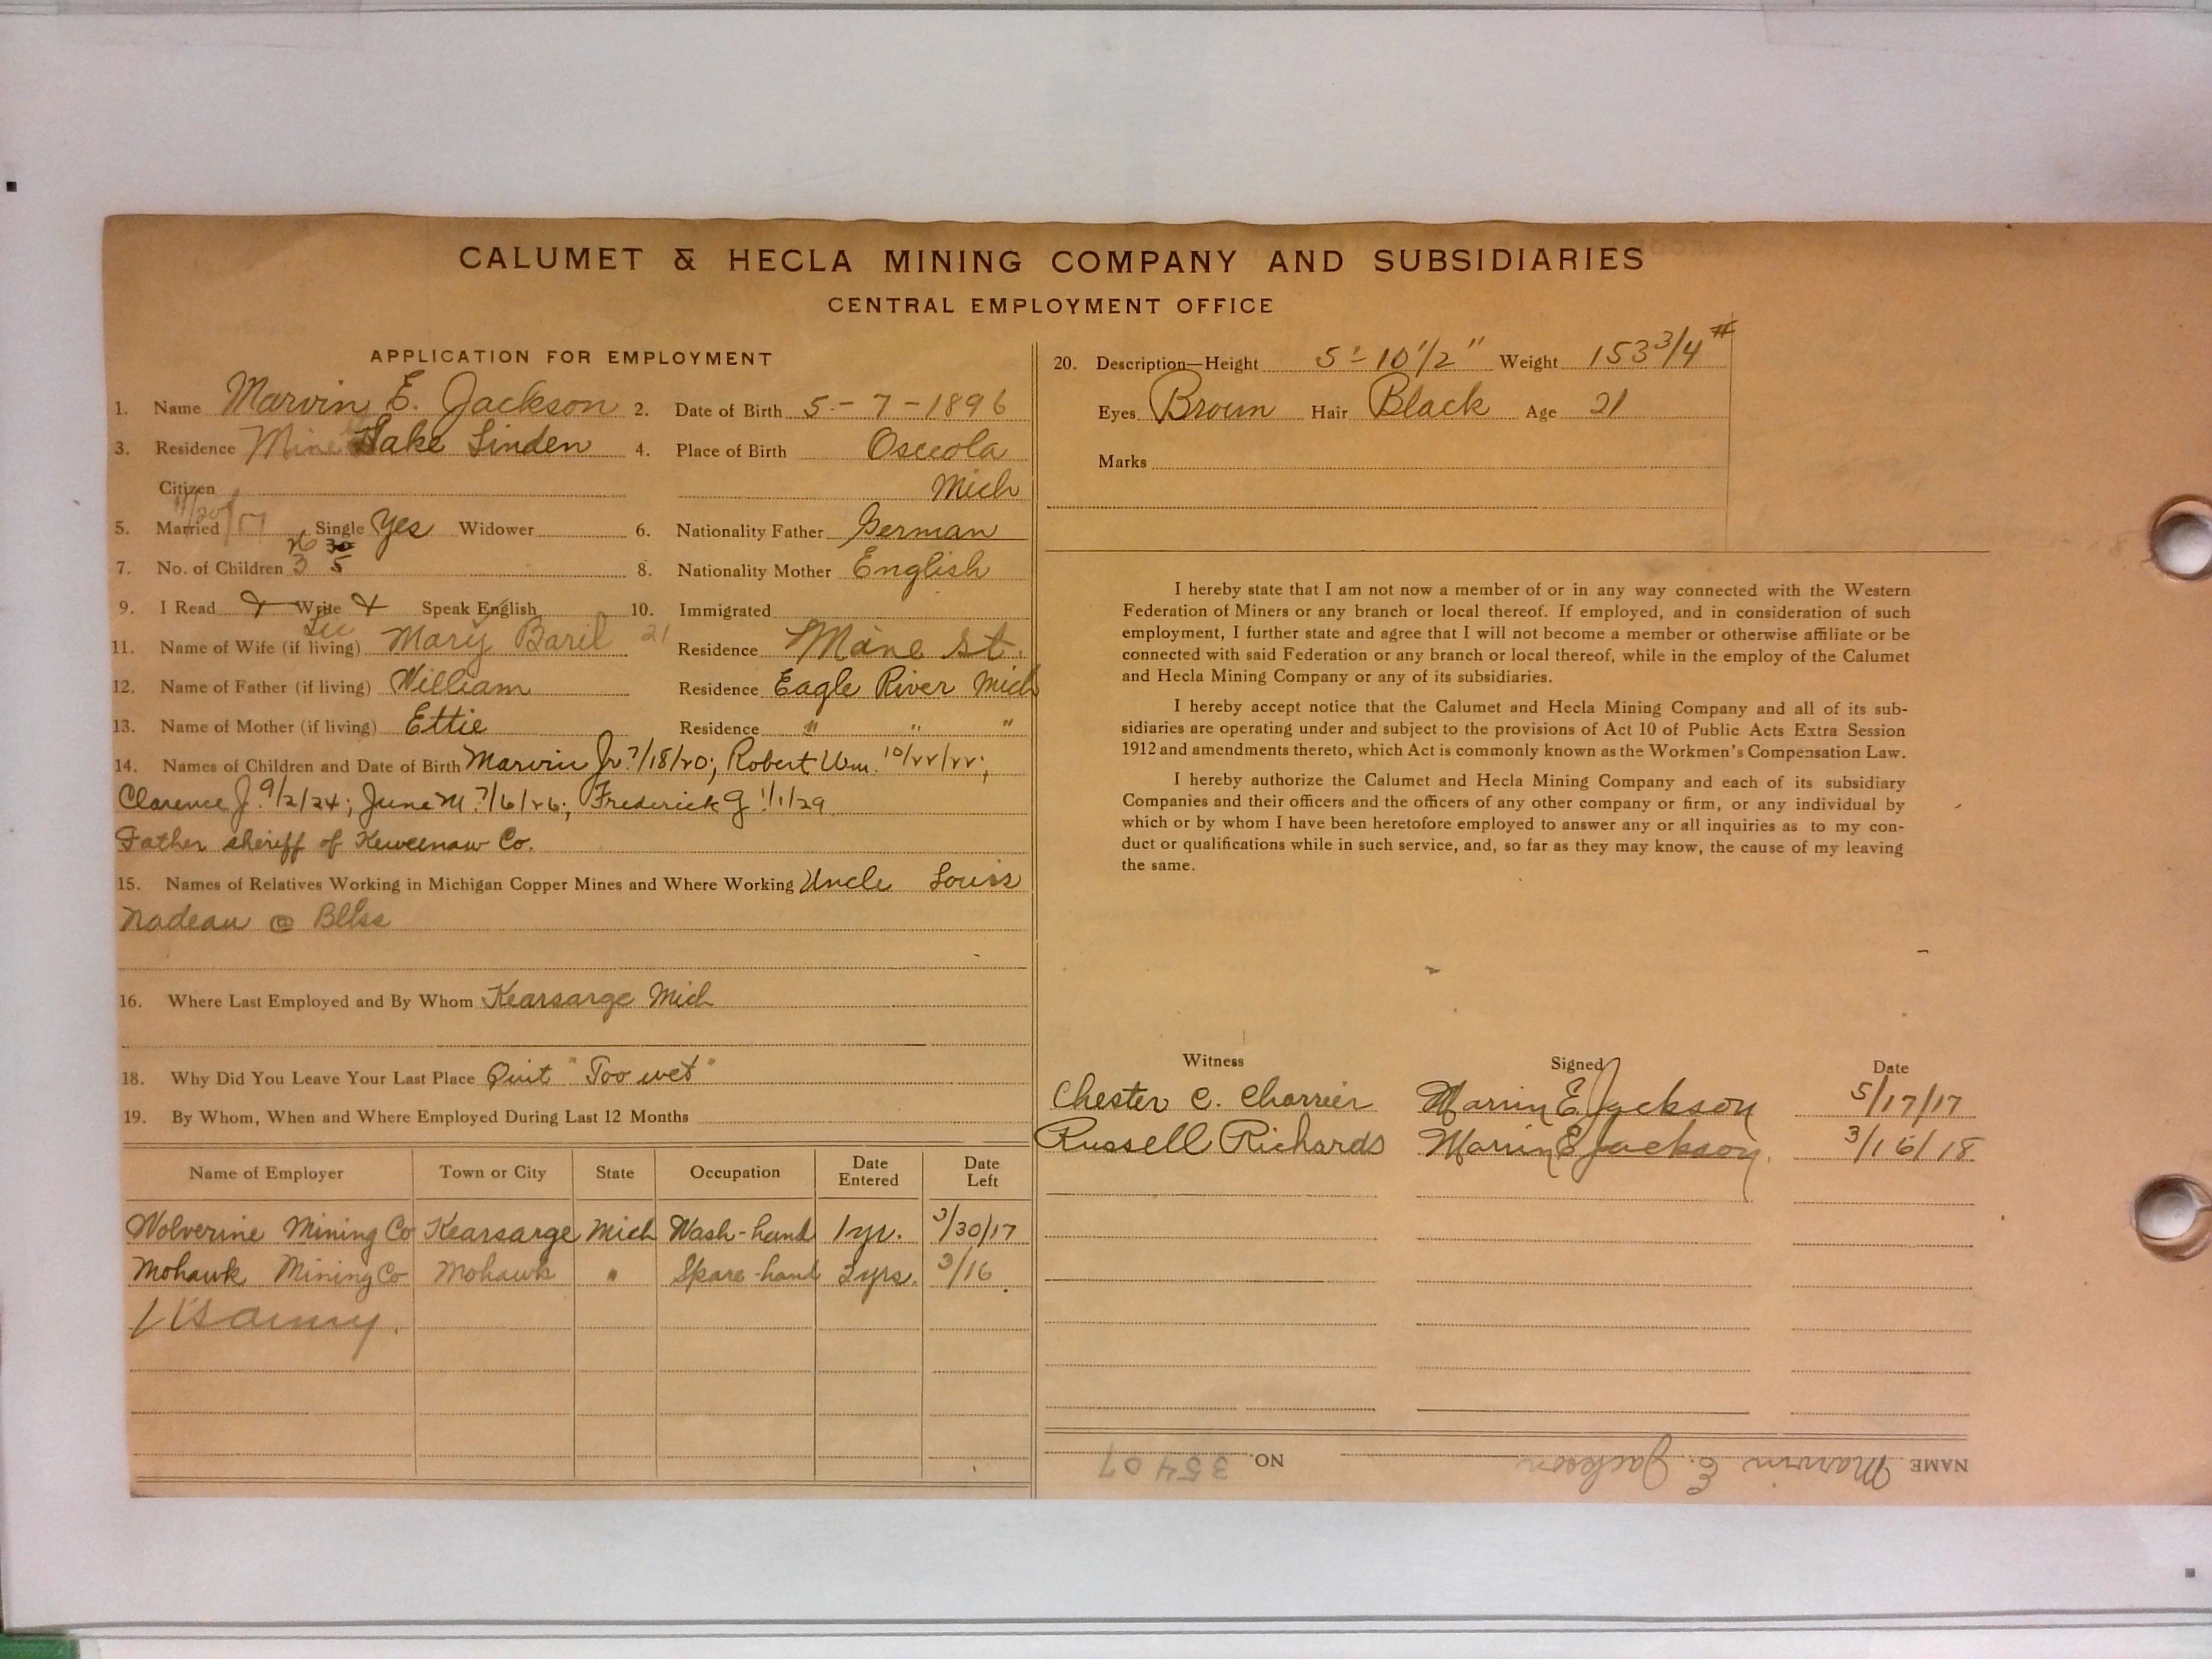 CALUMET & HECLA MINING COMPANY AND SUBSIDIARIES
CENTRAL EMPLOYMENT OFFICE
APPLICATION FOR EMPLOYMENT
1. Name Marvin E. Jackson 2. Date of Birth 5-7-1896
3. Residence Mine Lake Linden 4. Place of Birth Osceola
Citizen Mich
5. Married 11/20/17 Single Yes Widower 6. Nationality Father German
26 30
7. No. of Children 3 5 8. Nationality Mother English
9. I Read Write Speak English 10. Immigrated
11. Name of Wife (if living) Mary Baril 21 Residence Mane St.
12. Name of Father (if living) William Residence Eagle River Mich
13. Name of Mother (if living) Ettie Residence " " "
14. Names of Children and Date of Birth Marvin Jr. 7/18/20; Robert Wm. 10/22/22;
Clarence J. 9/2/24; June M. 7/6/26; Frederick G 1/1/29
Father sheriff of Keweenaw Co.
15. Names of Relatives Working in Michigan Copper Mines and Where Working Uncle Louis
Nadeau @
16. Where Last Employed and By Whom Kearsarge Mich
18. Why Did You Leave Your Last Place Quit "Too wet"
19. By Whom, When and Where Employed During Last 12 Months
Name of Employer Town or City State Occupation Date Entered Date Left
Wolverine Mining Co Kearsarge Mich Wash-hand 1 yr. 3/30/17
Mohawk Mining Co Mohawk " Spare-hand 2 yrs. 3/16
US army.
20. Description—Height 5'-10 1/2" Weight 153 3/4 #
Eyes Brown Hair Black Age 21
Marks
I hereby state that I am not now a member of or in any way connected with the Western
Federation of Miners or any branch or local thereof. If employed, and in consideration of such
employment, I further state and agree that I will not become a member or otherwise affiliate or be
connected with said Federation or any branch or local thereof, while in the employ of the Calumet
and Hecla Mining Company or any of its subsidiaries.
I hereby accept notice that the Calumet and Hecla Mining Company and all of its sub-
sidiaries are operating under and subject to the provisions of Act 10 of Public Acts Extra Session
1912 and amendments thereto, which Act is commonly known as the Workmen's Compensation Law.
I hereby authorize the Calumet and Hecla Mining Company and each of its subsidiary
Companies and their officers and the officers of any other company or firm, or any individual by
which or by whom I have been heretofore employed to answer any or all inquiries as to my con-
duct or qualifications while in such service, and, so far as they may know, the cause of my leaving
the same.
Witness Signed Date
Chester C. Charrier Marvin E Jackson 5/17/17
Russell Richards Marvin E Jackson. 3/16/18
NAME Marvin E. Jackson NO. 35407